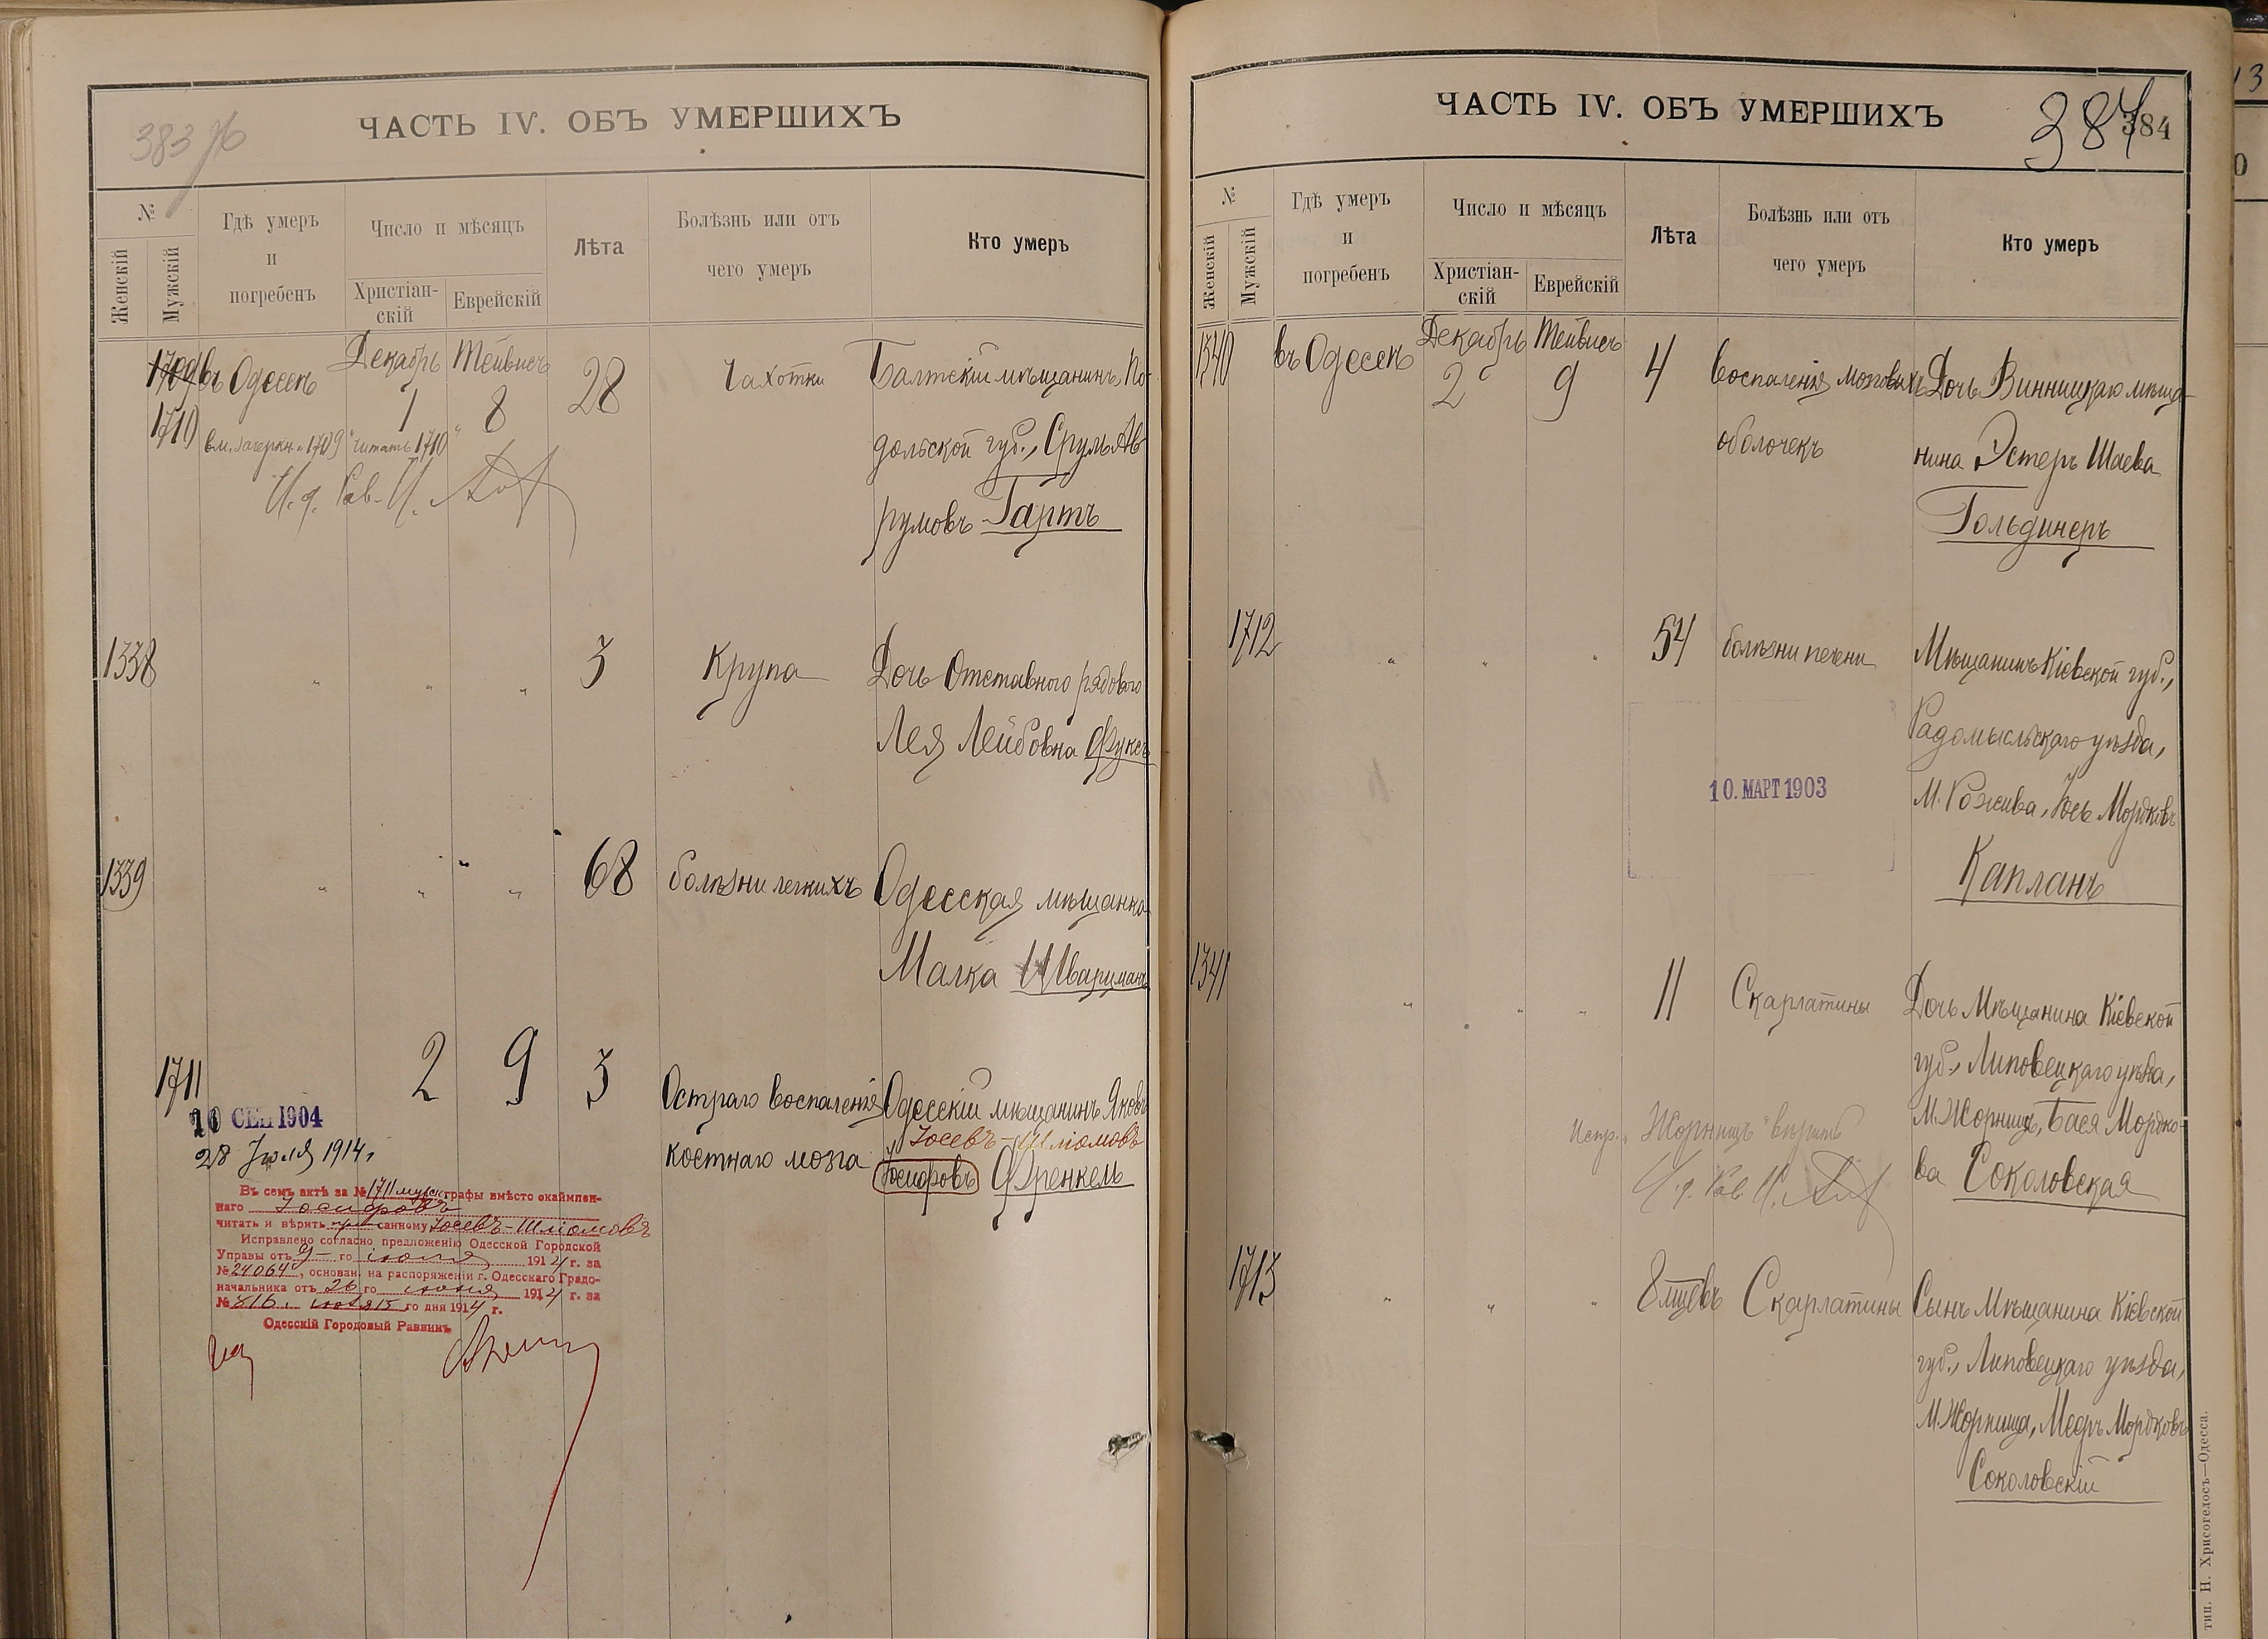 383 об
ЧАСТЬ IV. ОБЪ УМЕРШИХЪ
№
Женскій
Мужскій
Гдѣ умеръ
и
погребенъ
Число и мѣсяцъ
Христіан-
скій
Еврейскій
Лѣта
Болѣзнь или отъ
чего умеръ
Кто умеръ
1709 въ Одессѣ Декабрь Тейвисъ 28 Чахотки Балтскій мѣщанинъ По-
1710 1 8 дольской губ., Сруль Ав-
вм. зачеркн. „1709" читать „1710"
И. д. Рав.
румовъ Гартъ
1338 " " " 3 Крупа Дочь Отставного рядового
Лея Лейбовна Фуксъ
1339 " " " 68 болѣзни легкихъ Одесская мѣщанка
Малка Шварцманъ
1711 2 9 3 Остраго воспаленія Одесскій мѣщанинъ Яковъ
Іосевъ-Шліомовъ
костнаго мозга Іосифовъ Френкель
10 СЕН 1904
28 Іюля 1914 г.
Въ семъ актѣ за № 1711 мужск графы вмѣсто окаймлен-
наго Іосифовъ
читать и вѣрить написанному Іосевъ-Шліомовъ
Исправлено согласно предложенію Одесской Городской
Управы отъ 9-го іюля 1914 г. за
№ 24064, основан. на распоряженіи г. Одесскаго Градо-
начальника отъ 26 го іюня 1914 г. за
№ 816. іюля 15 го дня 1914 г.
Одесскій Городовый Раввинъ
ЧАСТЬ IV. ОБЪ УМЕРШИХЪ
387
384
№
Женскій
Мужскій
Гдѣ умеръ
и
погребенъ
Число и мѣсяцъ
Христіан-
скій
Еврейскій
Лѣта
Болѣзнь или отъ
чего умеръ
Кто умеръ
1340 въ Одессѣ Декабрь Тейвисъ 4 Воспаленія мозговыхъ Дочь Винницкаго мѣща-
2 9
оболочекъ нина Эстеръ Шаева
Гольдинеръ
1712 " " " 54 болѣзни печени Мѣщанинъ Кіевской губ.,
Радомысльскаго уѣзда,
10. МАРТ 1903
М. Рожева, Іось Мордковъ
Капланъ
1341 " " " 11 Скарлатины Дочь Мѣщанина Кіевской
губ., Липовецкаго уѣзда,
М. Жорнищъ, Бася Мордко-
Испр. „Жорнищъ" вѣрить
ва Соколовская
И. д. Рав.
1713 " " " 8 мцевъ Скарлатины Сынъ Мѣщанина Кіевской
губ., Липовецкаго уѣзда,
М. Жорнища, Меръ Мордковъ
Соколовскій
тип. Н. Хрисогелосъ—Одесса.